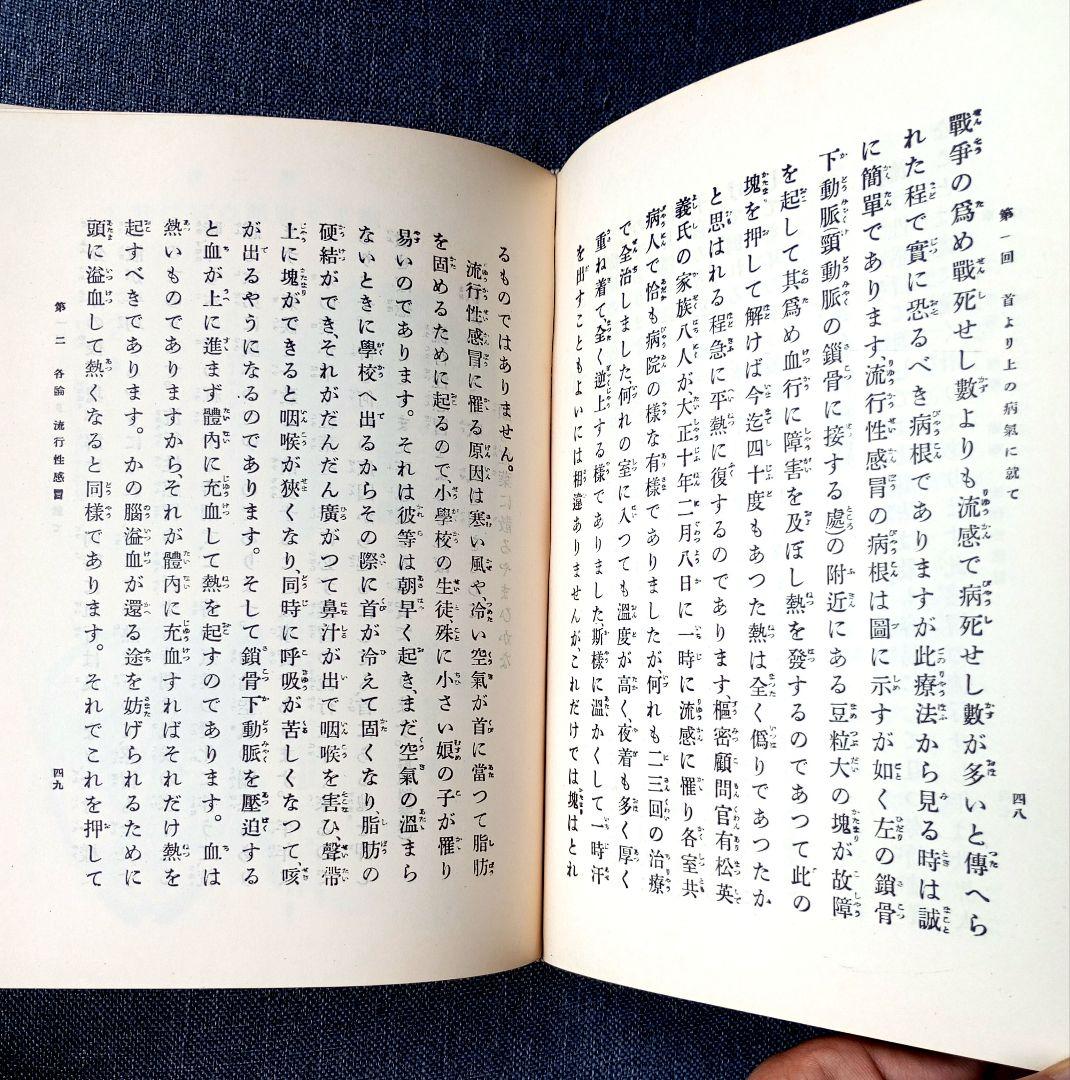 第一回 首より上の病氣に就て
四八
戰爭の爲め戰死せし數よりも流感で病死せし數が多いと傳へら
れた程で實に恐るべき病根でありますが此療法から見る時は誠
に簡單であります、流行性感冒の病根は圖に示すが如く左の鎖骨
下動脈(頸動脈の鎖骨に接する處)の附近にある豆粒大の塊が故障
を起して其爲め血行に障害を及ぼし熱を發するのであつて此の
塊を押して解けば今迄四十度もあつた熱は全く僞りであつたか
と思はれる程急に平熱に復するのであります、樞密顧問官有松英
義氏の家族八人が大正十年二月八日に一時に流感に罹り各室共
病人で恰も病院の樣な有樣でありましたが何れも二三回の治療
で全治しました何れの室に入つても溫度が高く、夜着も多く厚く
重ね着て、全く逆上する樣でありました、斯樣に溫かくして一時汗
を出すこともよいには相違ありませんが、これだけでは塊はとれ
るものではありません。
流行性感冒に罹る原因は寒い風や、冷い空氣が首に當つて脂肪
を固めるために起るので、小學校の生徒、殊に小さい娘の子が罹り
易いのであります。それは彼等は朝早く起き、まだ空氣の溫まら
ないときに學校へ出るからその際に首が冷えて固くなり、脂肪の
硬結ができ、それがだんだん廣がつて鼻汁が出で咽喉を害ひ、聲帶
上に塊ができると咽喉が狹くなり、同時に呼吸が苦しくなつて、咳
が出るやうになるのであります。そして鎖骨下動脈を壓迫する
と血が上に進まず體內に充血して熱を起すのであります。血は
熱いものでありますから、それが體內に充血すればそれだけ熱を
起すべきであります。かの腦溢血が還る途を妨げられるために
頭に溢血して熱くなると同樣であります。それでこれを押して
第一二 各論 流行性感冒
四九